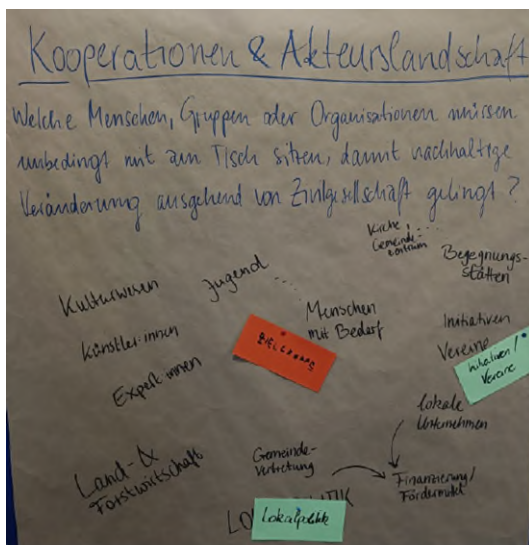 Kooperationen & Akteurslandschaft
Welche Menschen, Gruppen oder Organisationen müssen
unbedingt mit am Tisch sitzen, damit nachhaltige
Veränderung ausgehend von Zivilgesellschaft gelingt?
Kirche,
Gemeinde-
zentrum
Begegnungs-
stätten
Jugend
Kulturwesen
Menschen
mit Bedarf
Künstler:innen
Expert:innen
Initiativen
Vereine
Initiativen /
Vereine
Lokale
Unternehmen
Land- &
Forstwirtschaft
Gemeinde-
vertretung
Finanzierung/
Fördermittel
Lokalpolitik